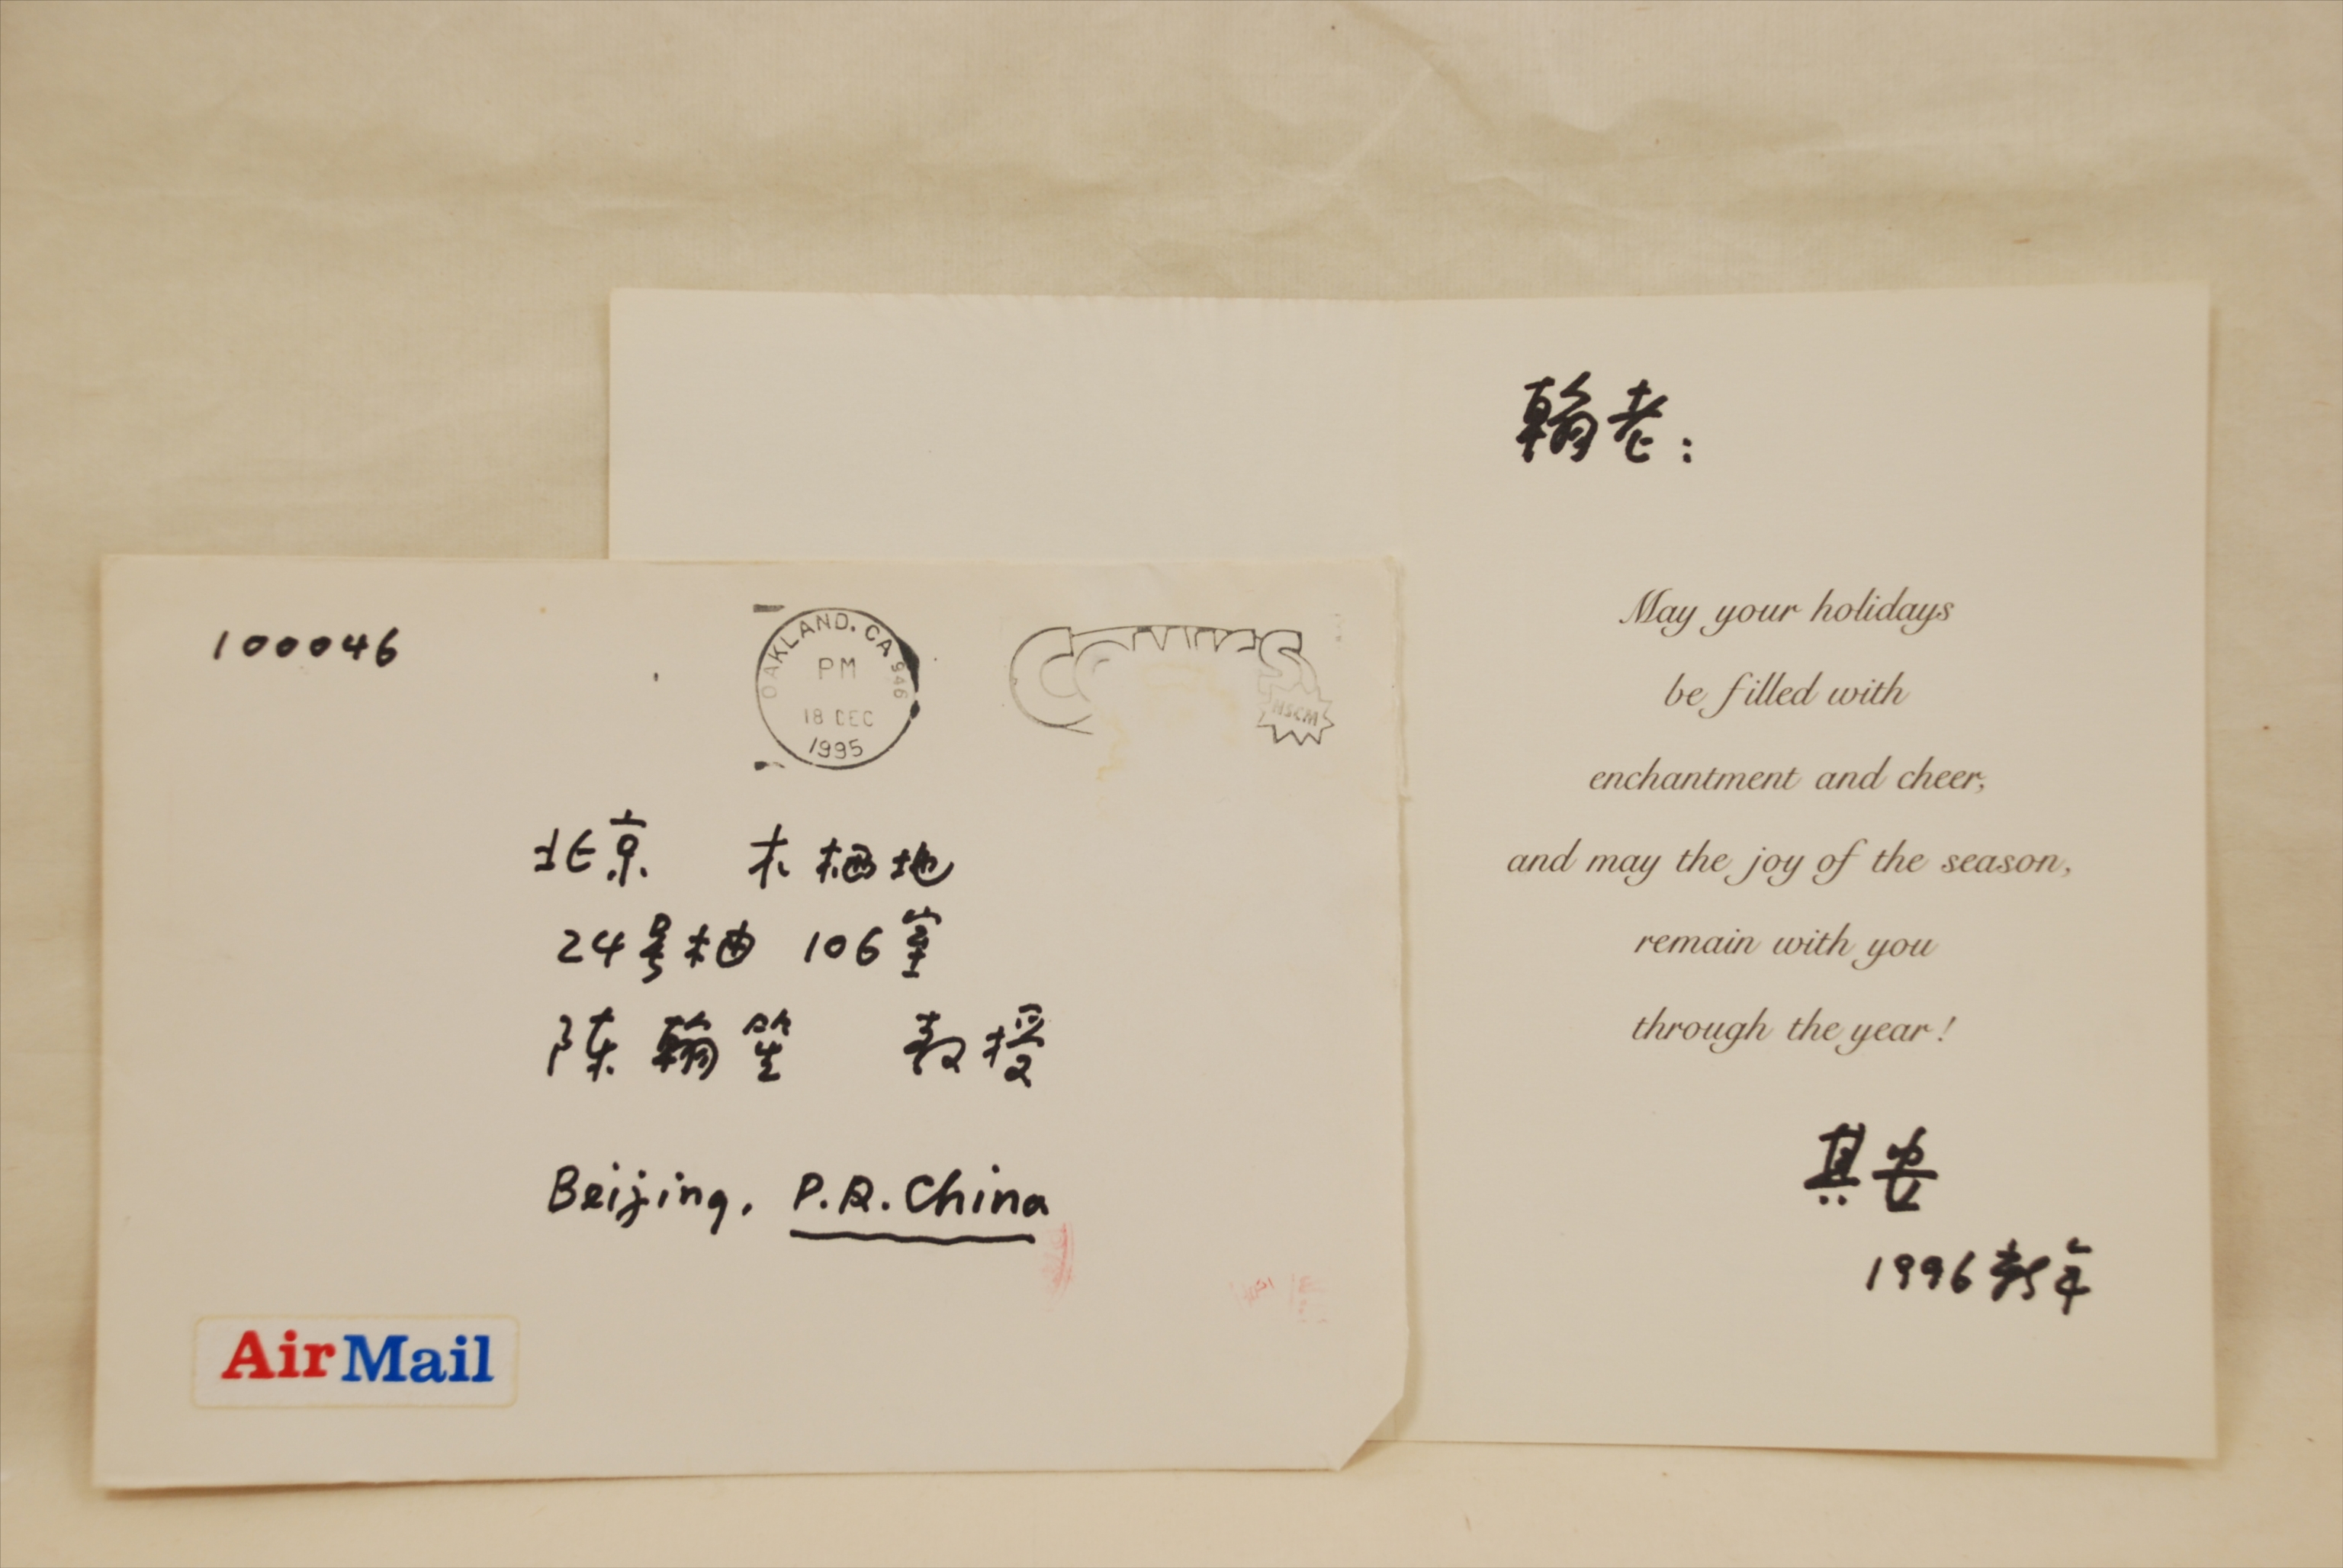 100046
OAKLAND, CA 946
PM
18 DEC
1995
HSCM
北京 木栖地
24号楼 106室
陈翰笙 教授
Beijing, P.R.China
AirMail
翰老:
May your holidays
be filled with
enchantment and cheer,
and may the joy of the season,
remain with you
through the year!
1996新年